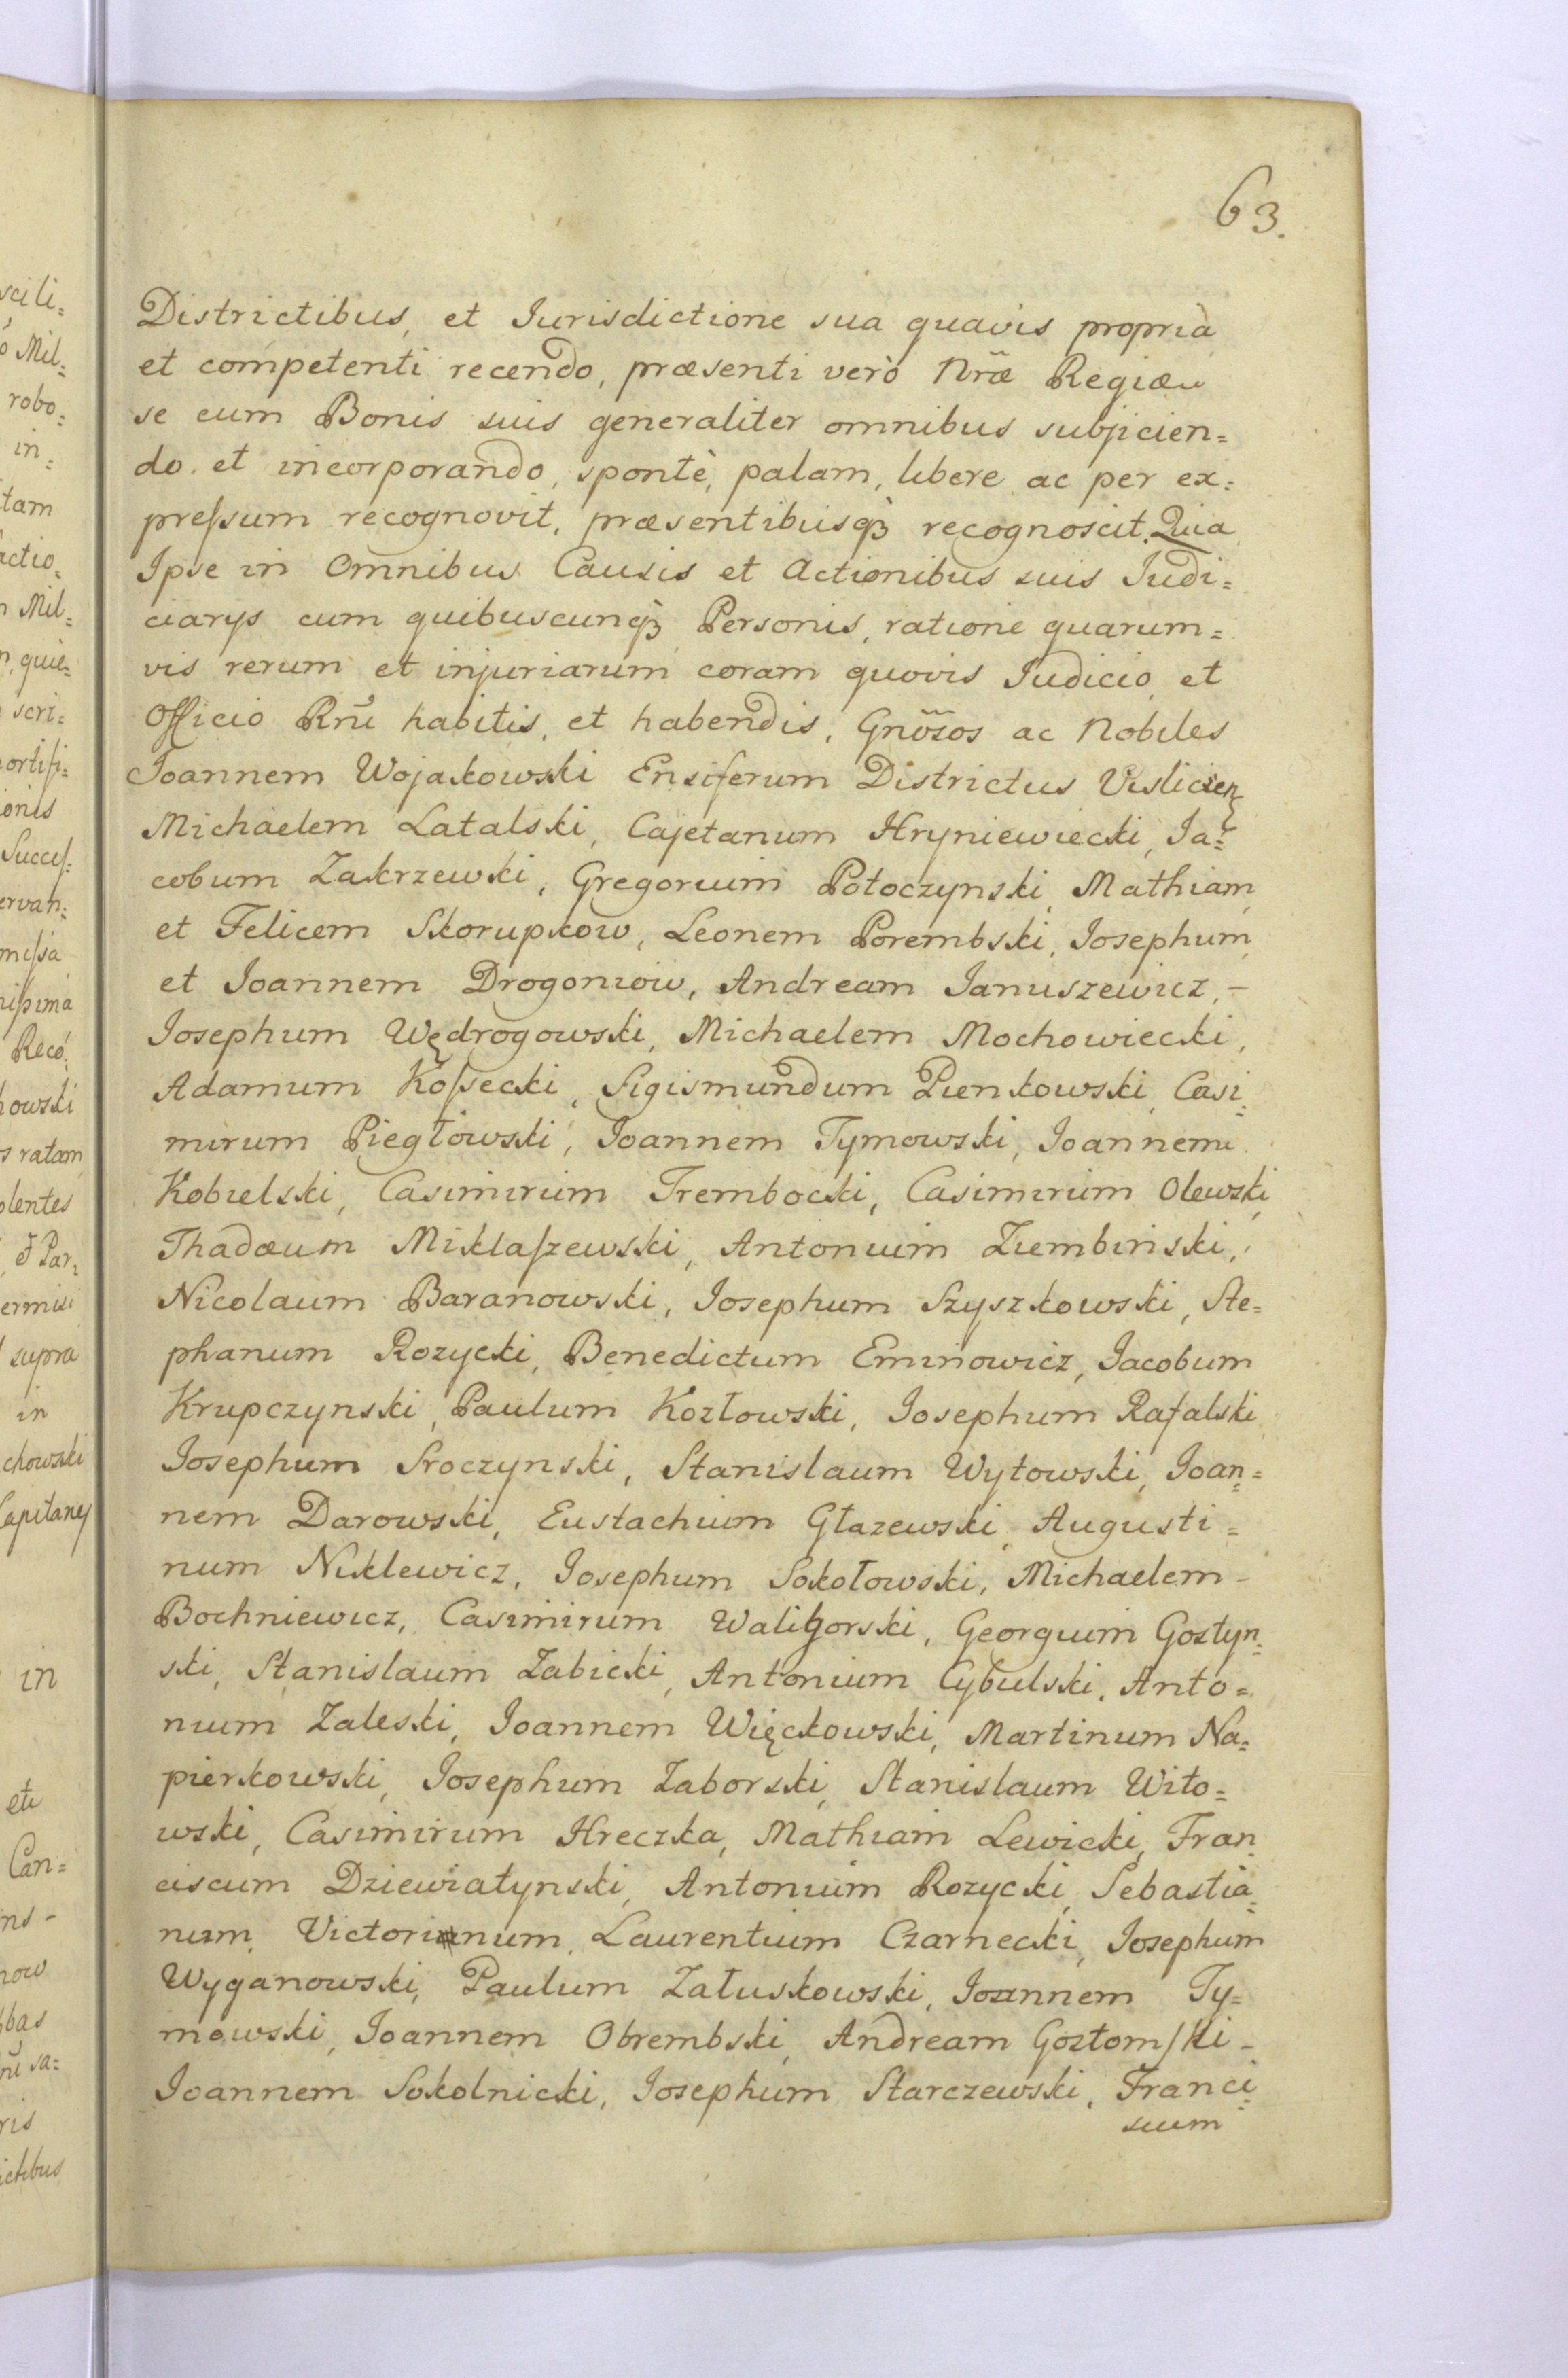 63.
Districtibus, et Jurisdictione sua quavis propriâ
et competenti recendo, præsenti verò Nr̃æ Regiæ
se cum Bonis suis generaliter omnibus subjicien=
do et incorporando, spontè, palam, libere ac per ex=
preſsum recognovit, præsentibusq̀3 recognoscit. Quia
Ipse in Omnibus Causis et Actionibus suis Iudi=
ciarys cum quibuscunq̀3 Personis, ratione quarum=
vis rerum et injuriarum coram quovis Iudicio et
Officio Rñi habitis, et habendis, Gnõsos ac Nobiles
Joannem Wojakowski Ensiferum Districtus Vislicien
Michaelem Latalski, Cajetanum Hryniewiecki, Ia=
cobum Zakrzewski, Gregorium Potoczynski, Mathiam
et Felicem Skorupkow, Leonem Porembski, Iosephum
et Ioannem Drogoniow, Andream Ianuszewicz, –
Iosephum Wędrogowski, Michaelem Mochowiecki,
Adamum Koſsecki, Sigismundum Pienkowski, Casi=
mirum Piegłowski, Joannem Tymowski, Joannem
Kobielski, Casimirum Trembocki, Casimirum Olewski,
Thadæum Miklaſzewski, Antonium Ziembinski,
Nicolaum Baranowski, Iosephum Szyszkowski, Ste=
phanum Rozycki, Benedictum Eminowicz, Iacobum
Krupczynski, Paulum Kozłowski, Iosephum Rafalski
Iosephum Sroczynski, Stanislaum Wytowski, Joan=
nem Darowski, Eustachium Głazewski, Augusti=
num Niklewicz, Iosephum Sokołowski, Michaelem –
Bochniewicz, Casimirum Waligorski, Georgium Gostyn=
ski, Stanislaum Zabicki, Antonium Cybulski, Anto=
nium Zaleski, Joannem Więckowski, Martinum Na=
pierkowski, Josephum Zaborski, Stanislaum Wito=
wski, Casimirum Hreczka, Mathiam Lewicki, Fran
ciscum Dziewiatynski, Antonium Rozycki, Sebastia=
num, Victorianum, Laurentium Czarnecki, Josephum
Wyganowski, Paulum Załuskowski, Joannem Ty=
mowski, Joannem Obrembski, Andream Gostomſki –
Joannem Sokolnicki, Josephum Starczewski, Franci=
scum